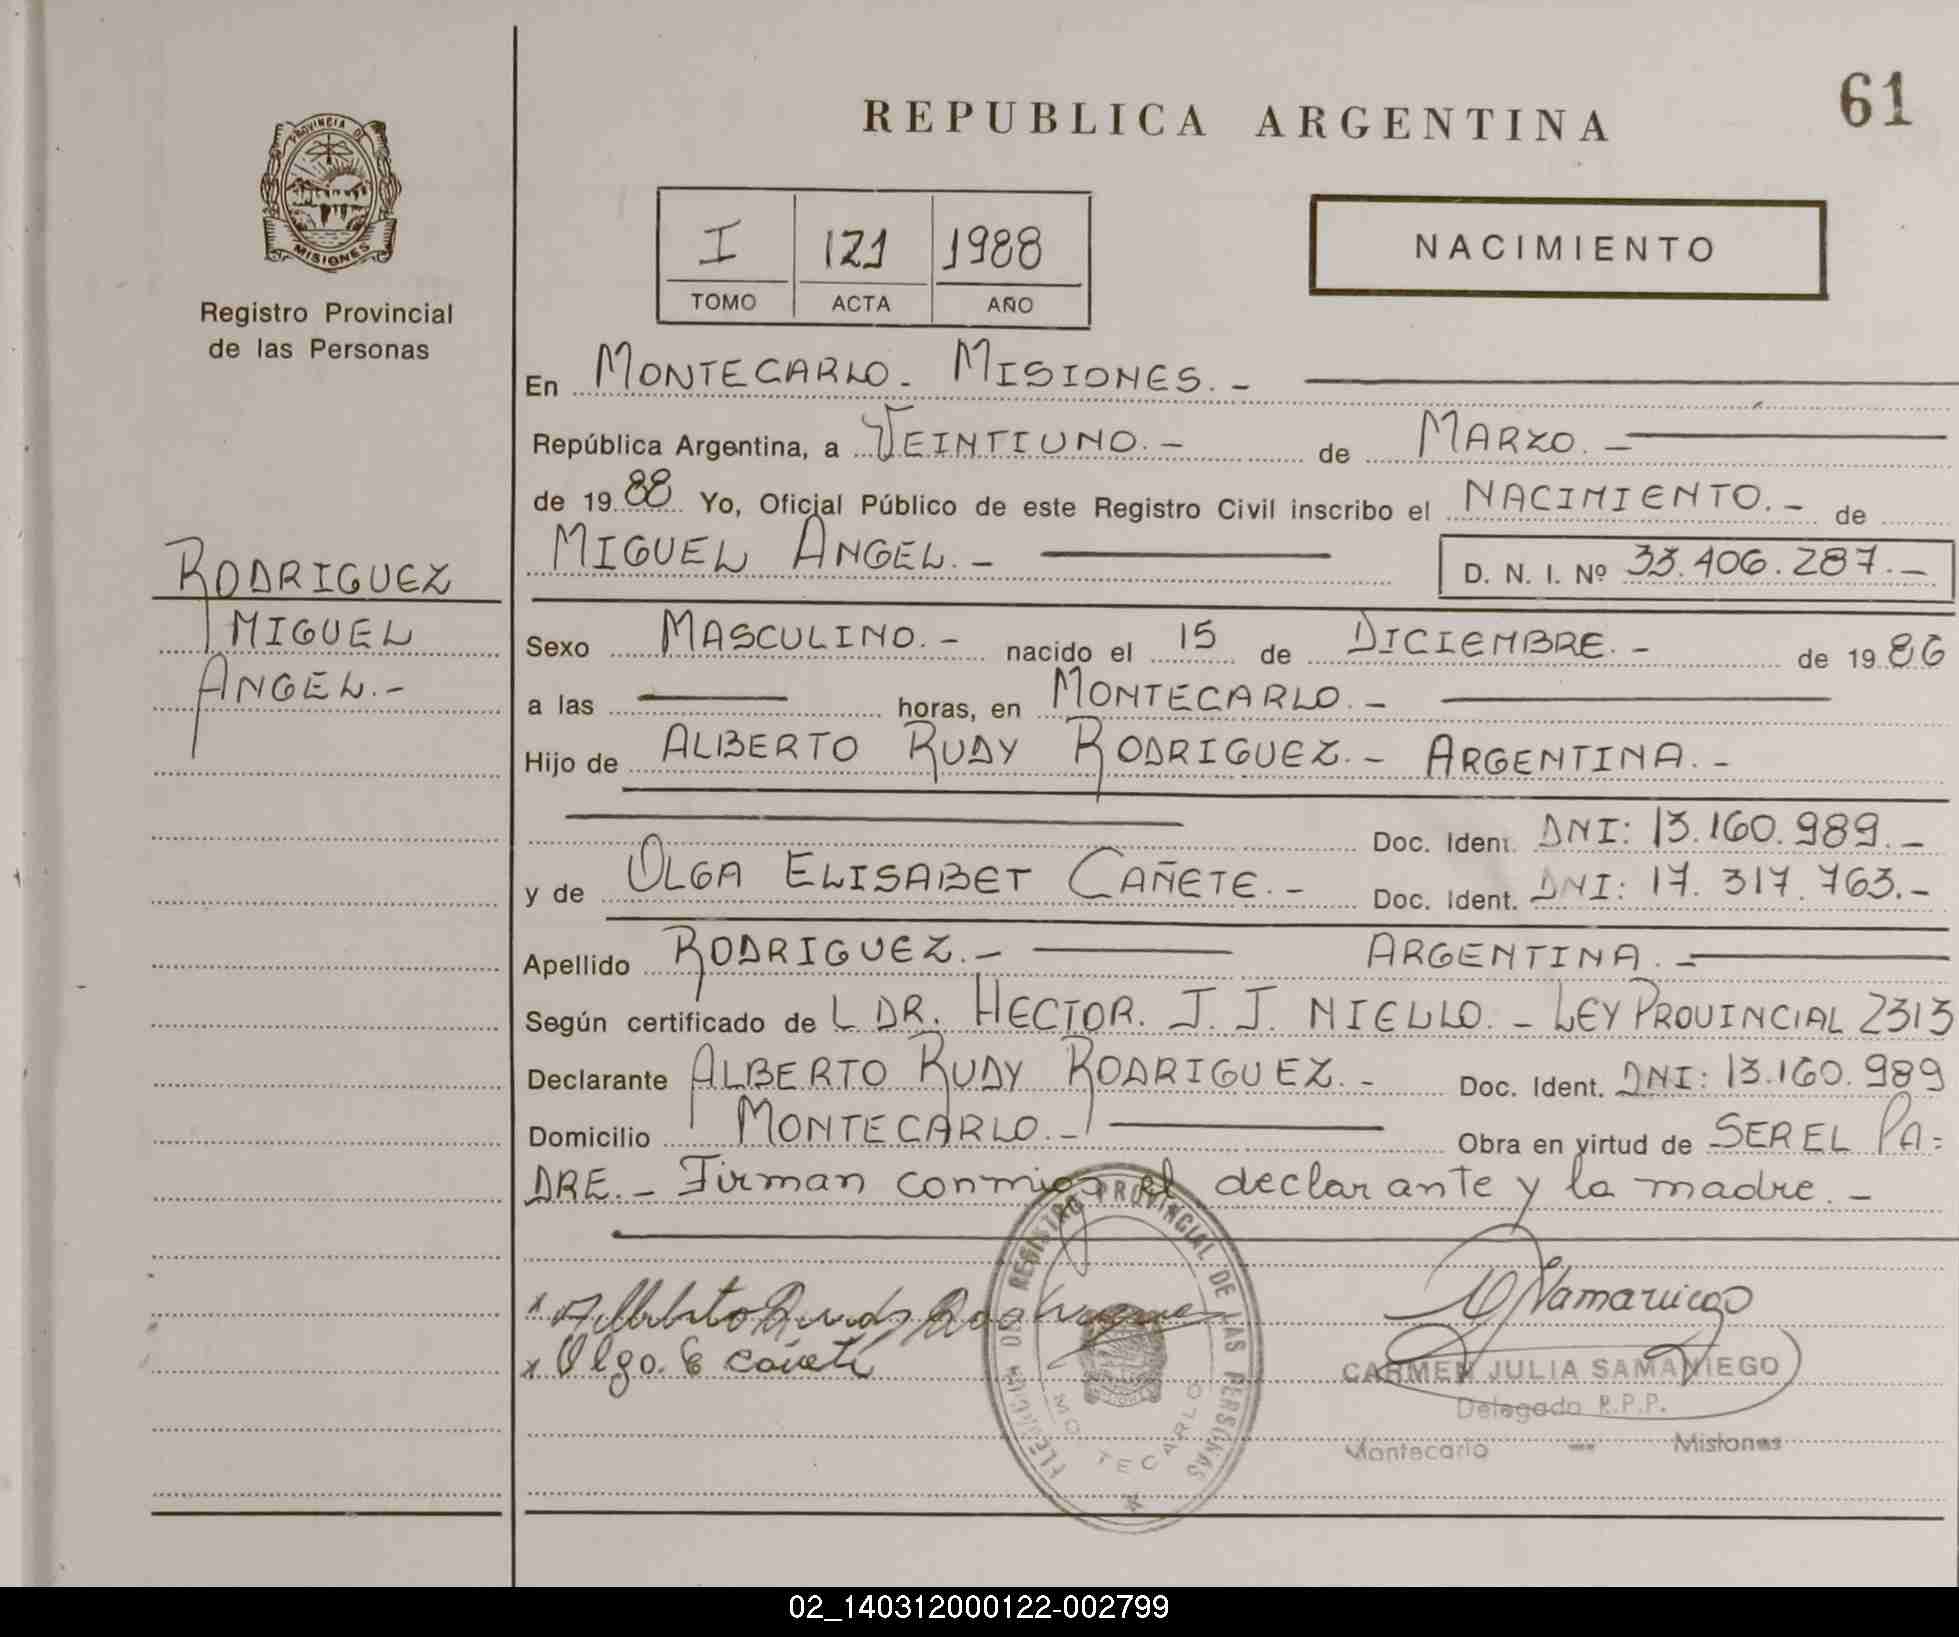 REPUBLICA ARGENTINA
61
PROVINCIA DE
MISIONES
Registro Provincial
de las Personas
I 121 1988
TOMO ACTA AÑO
NACIMIENTO
En MONTECARLO - MISIONES. -
República Argentina, a VEINTIUNO. - de MARZO. -
de 19 88 Yo, Oficial Público de este Registro Civil inscribo el NACIMIENTO. - de
MIGUEL ANGEL. - D. N. I. Nº 33.406.287. -
RODRIGUEZ
MIGUEL
ANGEL. -
Sexo MASCULINO. - nacido el 15 de DICIEMBRE. - de 19 86
a las horas, en MONTECARLO. -
Hijo de ALBERTO RUDY RODRIGUEZ. - ARGENTINA. -
Doc. Ident. DNI: 13.160.989. -
y de OLGA ELISABET CAÑETE. - Doc. Ident. DNI: 17.317.763. -
Apellido RODRIGUEZ. - ARGENTINA. -
Según certificado de L DR. HECTOR. J. J. NIELLO. - LEY PROVINCIAL 2313
Declarante ALBERTO RUDY RODRIGUEZ. - Doc. Ident. DNI: 13.160.989
Domicilio MONTECARLO. - Obra en virtud de SER EL PA=
DRE. - Firman conmigo el declarante y la madre. -
REGISTRO PROVINCIAL DE LAS PERSONAS
MONTECARLO
x Alberto Rudy Rodriguez
x Olga E Cañete
CARMEN JULIA SAMANIEGO
Delegado R.P.P.
Montecarlo - Misiones
02_140312000122-002799